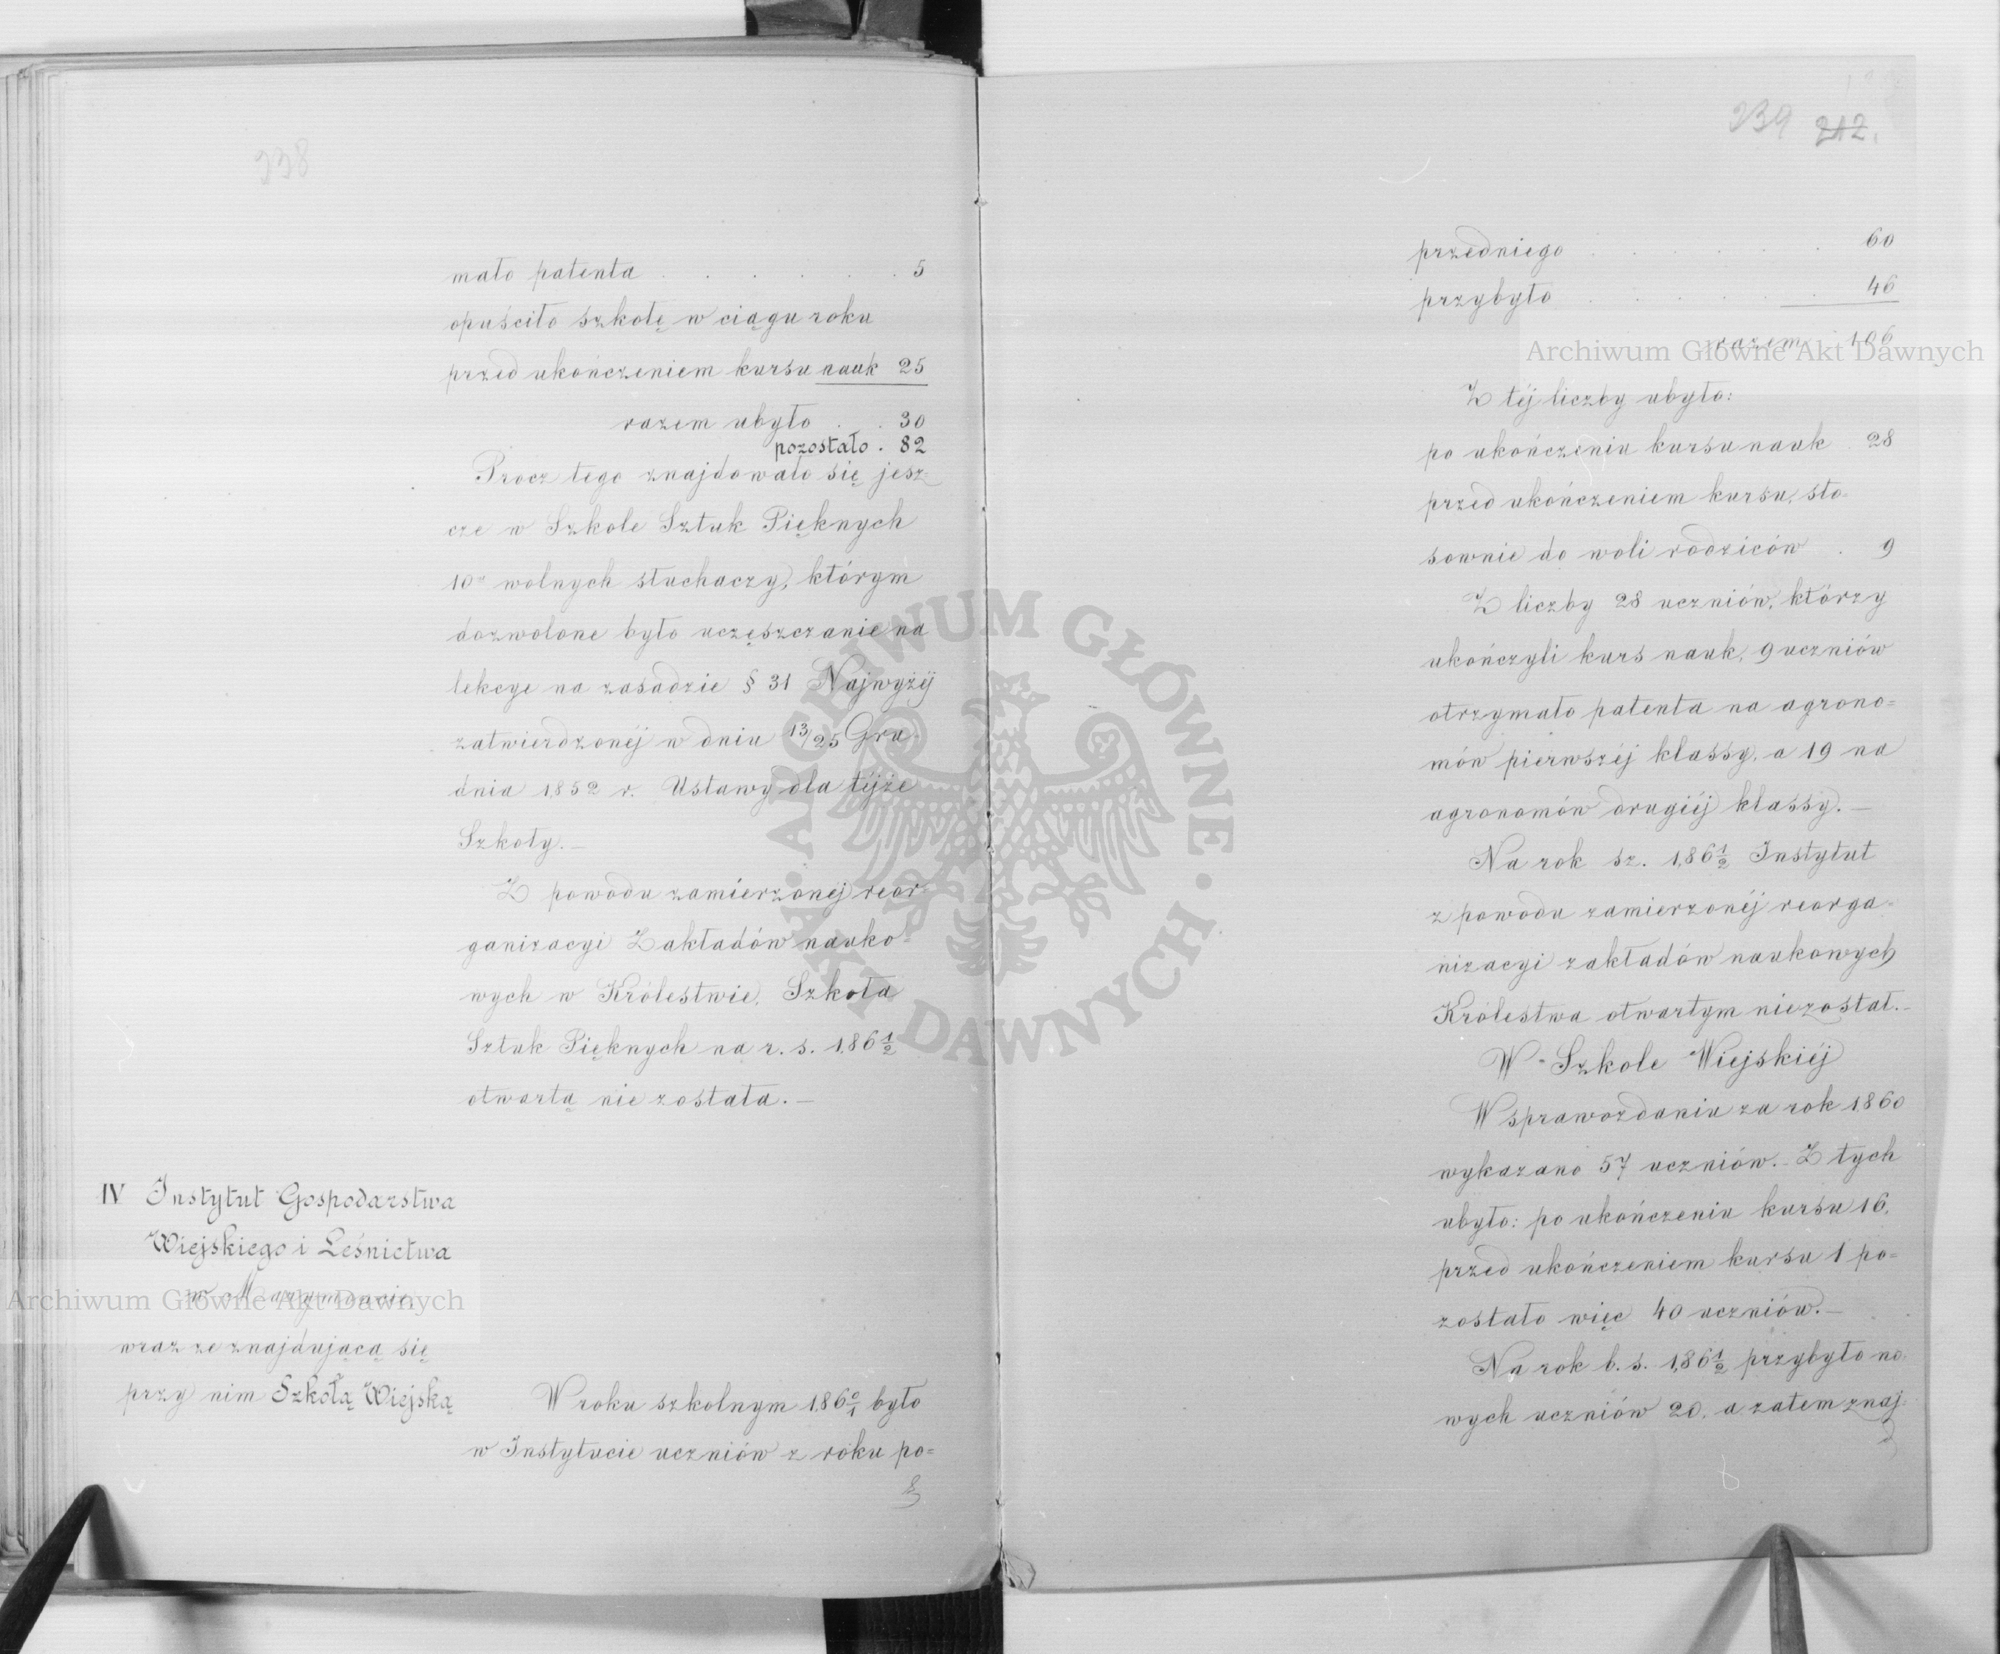 338
mało patenta . . . . . . 5
opuściło szkołę w ciągu roku
przed ukończeniem kursu nauk 25
razem ubyło . . 30
pozostało . 82
Procz tego znajdowało się jesz-
cze w Szkole Sztuk Pięknych
10" wolnych słuchaczy, którym
dozwolone było uczęszczanie na
lekcye na zasadzie § 31 Najwyżéj
zatwierdzonéj w dniu 13/25 Gru-
dnia 1852 r. Ustawy dla téjże
Szkoły. —
Z powodu zamierzonej reor-
ganizacyi Zakładów nauko-
wych w Królestwie, Szkoła
Sztuk Pięknych na r. s. 186 1/2
otwartą nie została. —
IV Instytut Gospodarstwa
Wiejskiego i Leśnictwa
w Marymoncie,
wraz ze znajdującą się
przy nim Szkołą Wiejską
W roku szkolnym 186 0/1 było
w Instytucie uczniów z roku po=
339 212.
przedniego . . . . . 60
przybyło . . . . . 46
razem 106
Z téj liczby ubyło:
po ukończeniu kursu nauk 28
przed ukończeniem kursu, sto-
sownie do woli rodziców . 9
Z liczby 28 uczniów, którzy
ukończyli kurs nauk, 9 uczniów
otrzymało patenta na agrono=
mów pierwszéj klassy, a 19 na
agronomów drugiéj klassy. —
Na rok sz. 186 1/2 Instytut
z powodu zamierzonéj reorga-
nizacyi zakładów naukowych
Królestwa otwartym niezostał. —
W Szkole Wiejskiéj
W sprawozdaniu za rok 1860
wykazano 57 uczniów. – Z tych
ubyło: po ukończeniu kursu 16,
przed ukończeniem kursu 1 po=
zostało więc 40 uczniów. —
Na rok b. s. 186 1/2 przybyło no-
wych uczniów 20, a zatem znaj-
Archiwum Główne Akt Dawnych
Archiwum Główne Akt Dawnych
· ARCHIWUM GŁÓWNE · AKT DAWNYCH